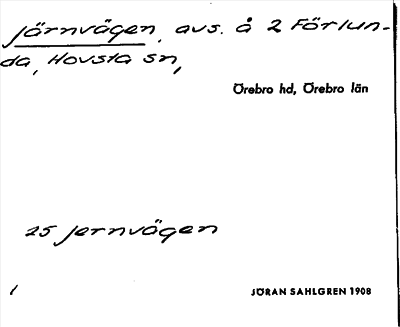 Järnvägen, avs. å 2 Förlun-
da, Hovsta sn,
Örebro hd, Örebro län
25 jernvägen
1
JÖRAN SAHLGREN 1908